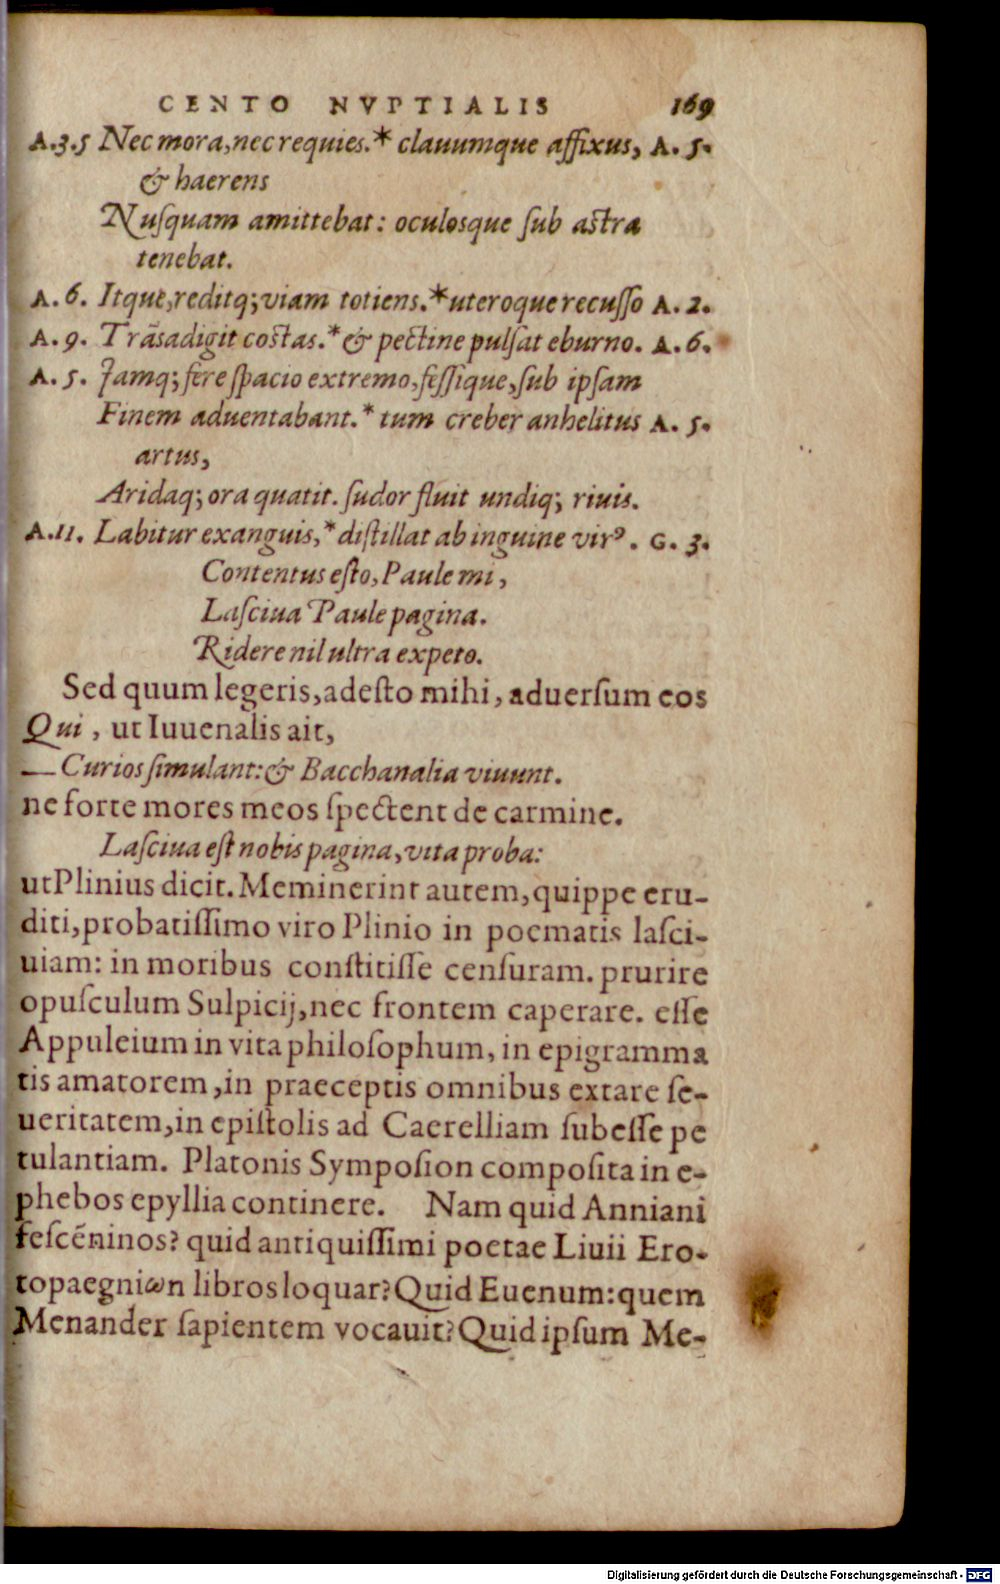 CENTO NVPTIALIS 169
A.3.5 Nec mora, nec requies.* clauumque affixus, A. 5.
& haerens
Nuſquam amittebat: oculosque ſub aſtra
tenebat.
A. 6. Itque, reditq; viam totiens.* uteroque recuſſo A. 2.
A. 9. Trãsadigit coſtas.* & pectine pulſat eburno. A. 6.
A. 5. Jamq; fere ſpacio extremo, feſſique, ſub ipſam
Finem aduentabant.* tum creber anhelitus A. 5.
artus,
Aridaq; ora quatit. ſudor fluit undiq; riuis.
A.11. Labitur exanguis,* diſtillat ab inguine virꝰ. G. 3.
Contentus eſto, Paule mi,
Laſciua Paule pagina.
Ridere nil ultra expeto.
Sed quum legeris, adeſto mihi, aduerſum eos
Qui, ut Iuuenalis ait,
— Curios ſimulant: & Bacchanalia viuunt.
ne forte mores meos ſpectent de carmine.
Laſciua eſt nobis pagina, vita proba:
utPlinius dicit. Meminerint autem, quippe eru-
diti, probatiſſimo viro Plinio in poematis laſci-
uiam: in moribus conſtitiſſe cenſuram. prurire
opuſculum Sulpicij, nec frontem caperare. eſſe
Appuleium in vita philoſophum, in epigramma
tis amatorem, in praeceptis omnibus extare ſe-
ueritatem, in epiſtolis ad Caerelliam ſubeſſe pe
tulantiam. Platonis Sympoſion compoſita in e-
phebos epyllia continere. Nam quid Anniani
feſcẽninos? quid antiquiſſimi poetae Liuii Ero-
topaegniωn libros loquar? Quid Euenum: quem
Menander ſapientem vocauit? Quid ipſum Me-
Digitalisierung gefördert durch die Deutsche Forschungsgemeinschaft - DFG